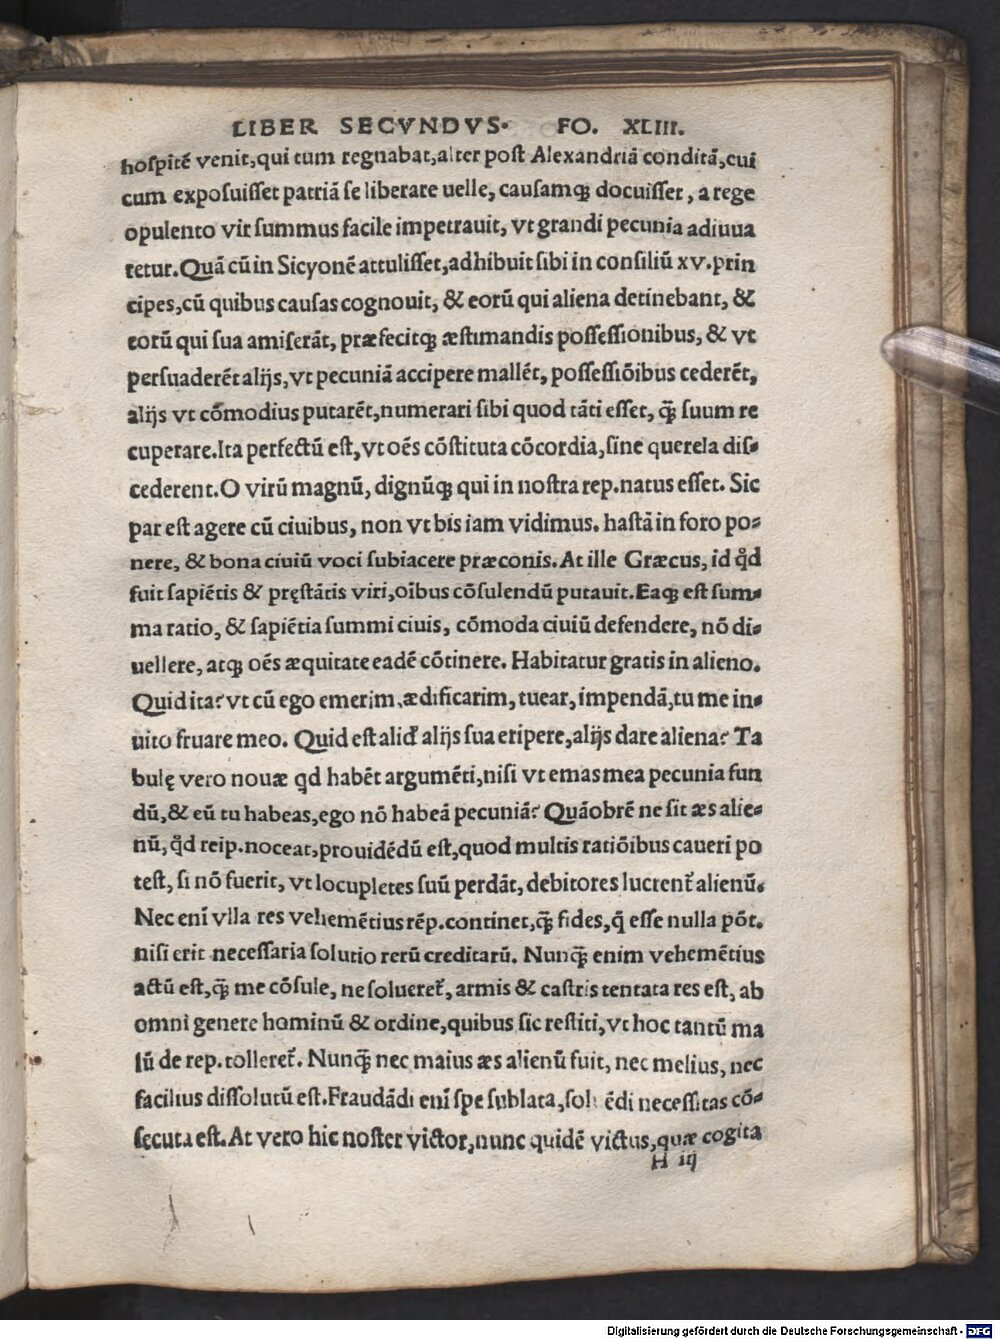 LIBER SECVNDVS. FO. XLIII.
hospitē venit, qui tum regnabat, alter post Alexandriā conditā, cui
cum exposuisset patriā se liberare uelle, causamq; docuisset, a rege
opulento vir summus facile impetrauit, vt grandi pecunia adiuua
retur. Quā cū in Sicyonē attulisset, adhibuit sibi in consiliū xv. prin
cipes, cū quibus causas cognouit, & eorū qui aliena detinebant, &
eorū qui sua amiserāt, præfecitq; æstimandis possessionibus, & vt
persuaderēt alijs, vt pecuniā accipere mallēt, possessiōibus cederēt,
alijs vt cōmodius putarēt, numerari sibi quod tāti esset, q̄ suum re
cuperare. Ita perfectū est, vt oēs cōstituta cōcordia, sine querela dis-
cederent. O virū magnū, dignūq; qui in nostra rep. natus esset. Sic
par est agere cū ciuibus, non vt bis iam vidimus. hastā in foro po-
nere, & bona ciuiū voci subiacere præconis. At ille Græcus, id qd̄
fuit sapiētis & pręstātis viri, oībus cōsulendū putauit. Eaq; est sum-
ma ratio, & sapiētia summi ciuis, cōmoda ciuiū defendere, nō di-
uellere, atq; oēs æquitate eadē cōtinere. Habitatur gratis in alieno.
Quid ita? vt cū ego emerim, ædificarim, tuear, impendā, tu me in-
uito fruare meo. Quid est aliđ alijs sua eripere, alijs dare aliena? Ta
bulę vero nouæ qd habēt argumēti, nisi vt emas mea pecunia fun
dū, & eū tu habeas, ego nō habeā pecuniā? Quāobrē ne sit æs alie-
nū, qd̄ reip. noceat, prouidēdū est, quod multis ratiōibus caueri po
test, si nō fuerit, vt locupletes suū perdāt, debitores lucrent᷑ alienū.
Nec enī vlla res vehemētius rēp. continet, q̄ fides, q̄ esse nulla pōt.
nisi erit necessaria solutio rerū creditarū. Nunq̄ enim vehemētius
actū est, q̄ me cōsule, ne solueret᷑, armis & castris tentata res est, ab
omni genere hominū & ordine, quibus sic restiti, vt hoc tantū ma
lū de rep. tolleret᷑. Nunq̄ nec maius æs alienū fuit, nec melius, nec
facilius dissolutū est. Fraudādi enī spe sublata, soluēdi necessitas cō-
secuta est. At vero hic noster victor, nunc quidē victus, quæ cogita
H iij
Digitalisierung gefördert durch die Deutsche Forschungsgemeinschaft - DFG